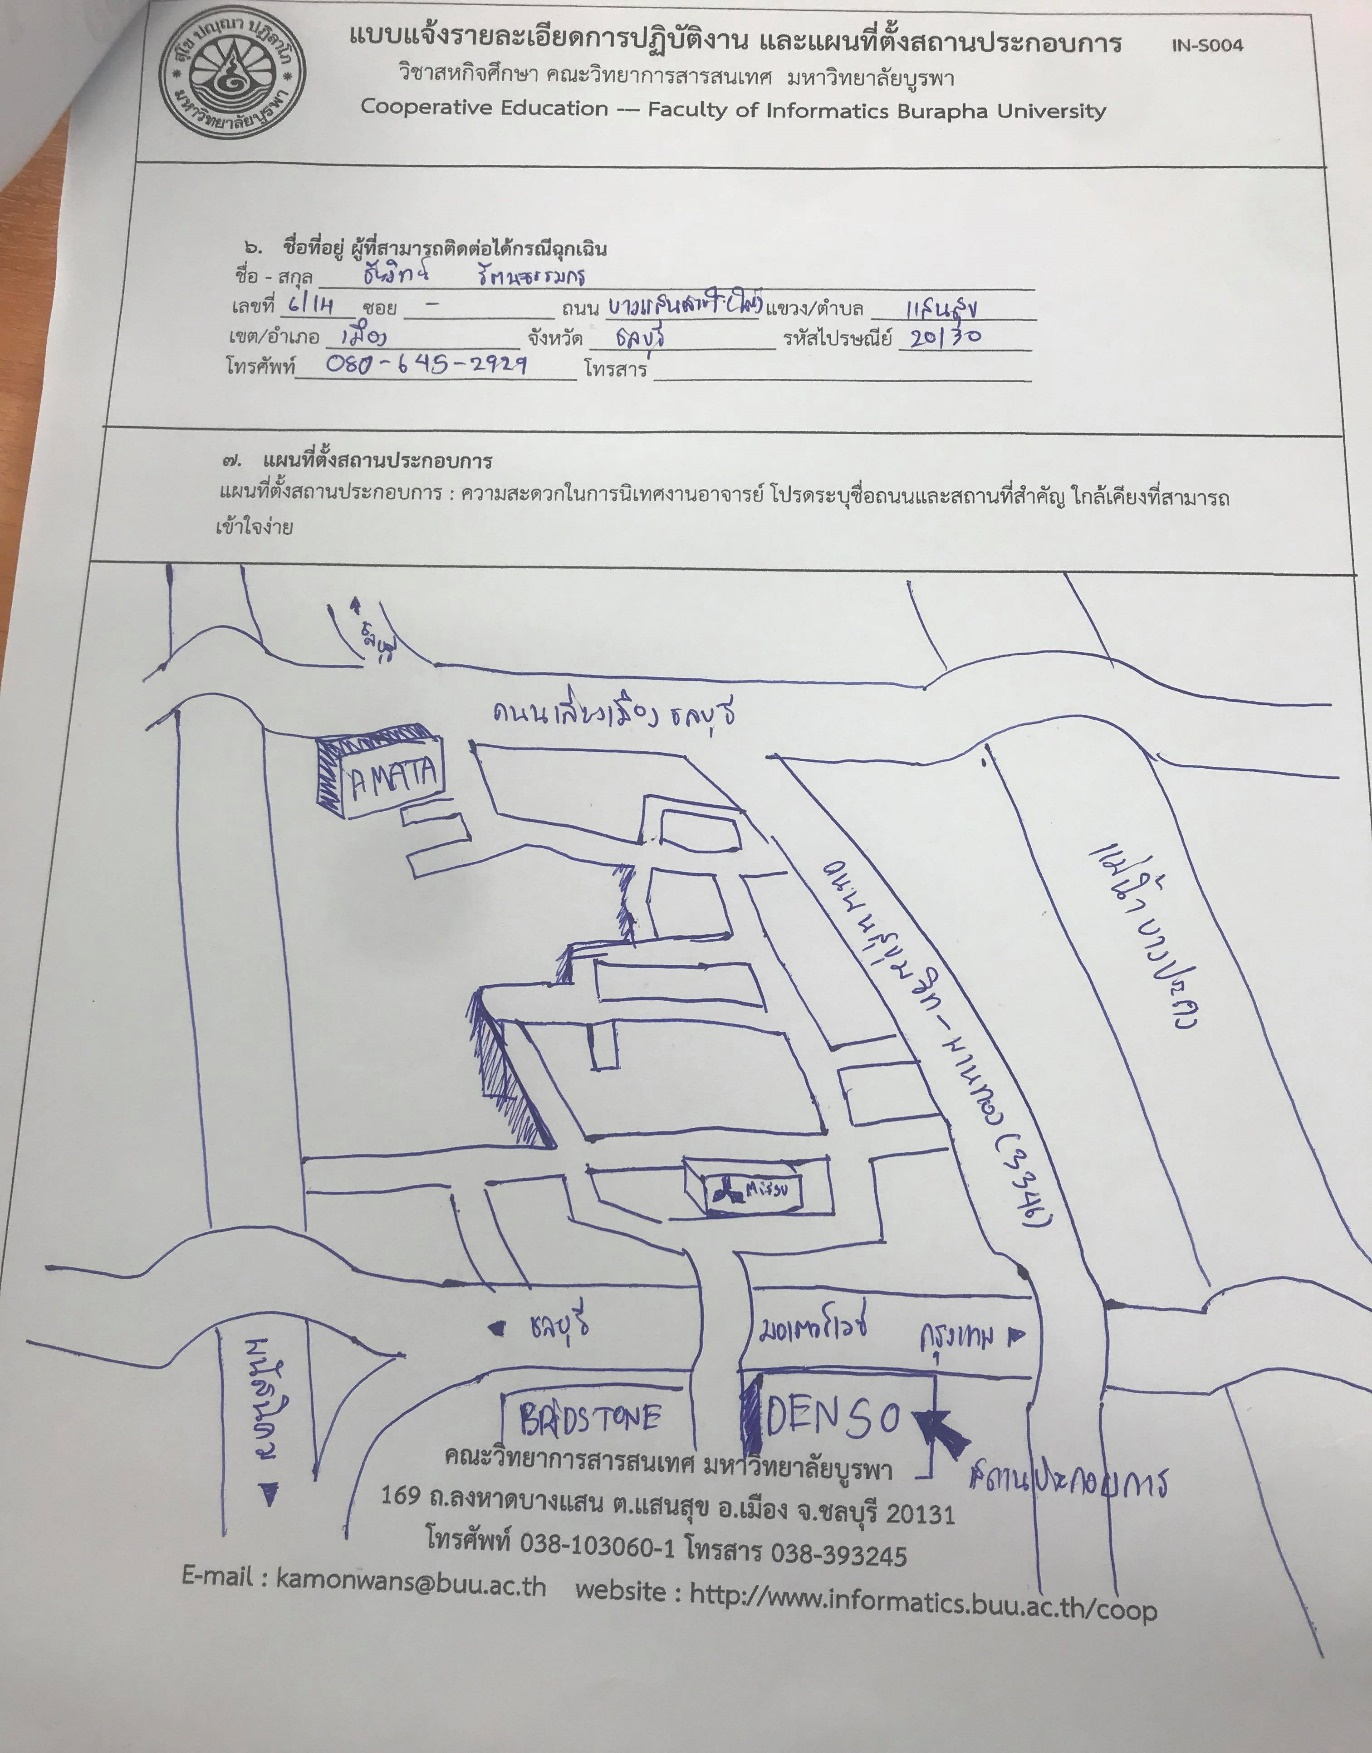 สุโข ปญฺญา ปฏิลาโภ
มหาวิทยาลัยบูรพา
แบบแจ้งรายละเอียดการปฏิบัติงาน และแผนที่ตั้งสถานประกอบการ IN-S004
วิชาสหกิจศึกษา คณะวิทยาการสารสนเทศ มหาวิทยาลัยบูรพา
Cooperative Education --- Faculty of Informatics Burapha University
๖. ชื่อที่อยู่ ผู้ที่สามารถติดต่อได้กรณีฉุกเฉิน
ชื่อ - สกุล รัตนธรรมกร
เลขที่ 6/14 ซอย - ถนน แขวง/ตำบล แสนสุข
เขต/อำเภอ เมือง จังหวัด ชลบุรี รหัสไปรษณีย์ 20130
โทรศัพท์ 080-645-2929 โทรสาร
๗. แผนที่ตั้งสถานประกอบการ
แผนที่ตั้งสถานประกอบการ : ความสะดวกในการนิเทศงานอาจารย์ โปรดระบุชื่อถนนและสถานที่สำคัญ ใกล้เคียงที่สามารถ
เข้าใจง่าย
ชลบุรี
ถนนเลี่ยงเมือง ชลบุรี
AMATA
ถนนสุขุมวิท-พานทอง (3346)
แม่น้ำบางปะกง
ชลบุรี มอเตอร์เวย์ กรุงเทพ
BRIDSTONE DENSO
สถานประกอบการ
คณะวิทยาการสารสนเทศ มหาวิทยาลัยบูรพา
169 ถ.ลงหาดบางแสน ต.แสนสุข อ.เมือง จ.ชลบุรี 20131
โทรศัพท์ 038-103060-1 โทรสาร 038-393245
E-mail : kamonwans@buu.ac.th website : http://www.informatics.buu.ac.th/coop